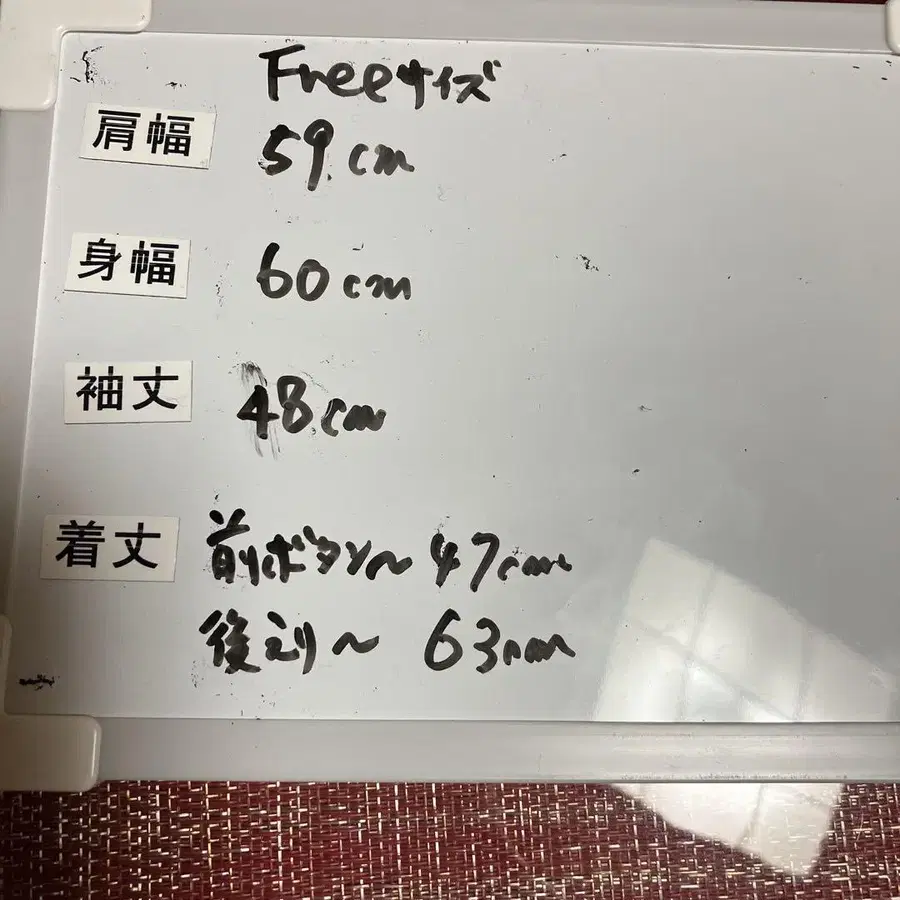 Freeサイズ
肩幅 59.cm
身幅 60cm
袖丈 48cm
着丈 前ボタン〜47cm
後えり〜 63cm